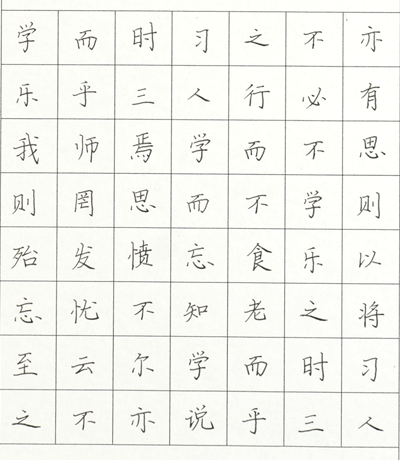 学而时习之不亦
乐乎三人行必有
我师焉学而不思
则罔思而不学则
殆发愤忘食乐以
忘忧不知老之将
至云尔学而时习
之不亦说乎三人